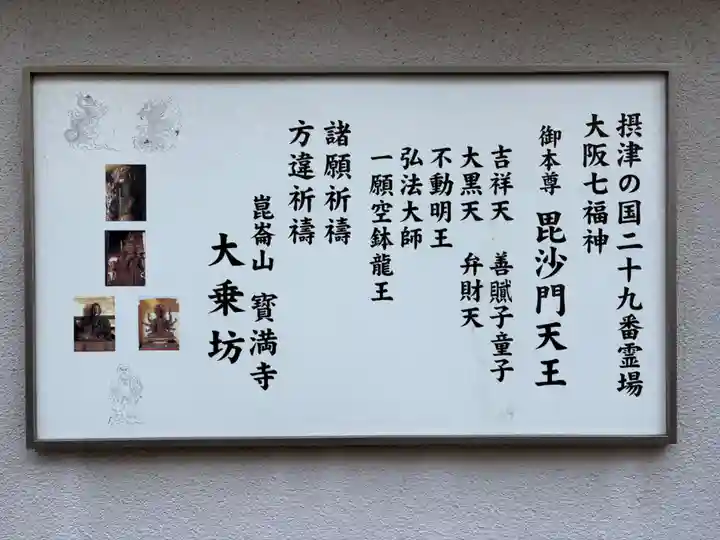 摂津の国二十九番霊場
大阪七福神
御本尊 毘沙門天王
吉祥天 善膩子童子
大黒天 弁財天
不動明王
弘法大師
一願空鉢龍王
諸願祈禱
方違祈禱
崑崙山 寶満寺
大乗坊